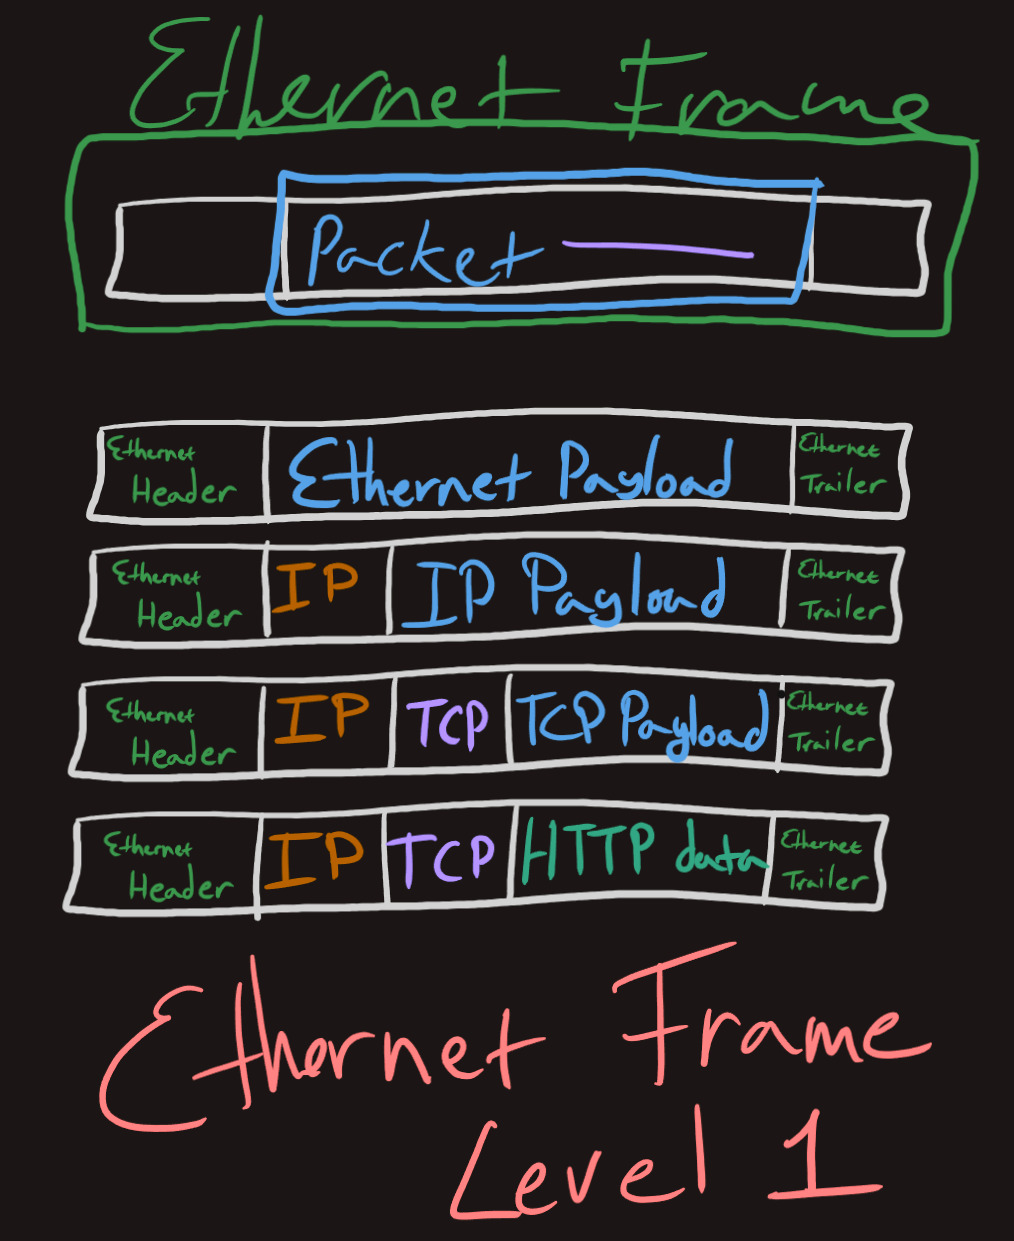 Ethernet Frame
Packet
Ethernet Header Ethernet Payload Ethernet Trailer
Ethernet Header IP IP Payload Ethernet Trailer
Ethernet Header IP TCP TCP Payload Ethernet Trailer
Ethernet Header IP TCP HTTP data Ethernet Trailer
Ethernet Frame
Level 1